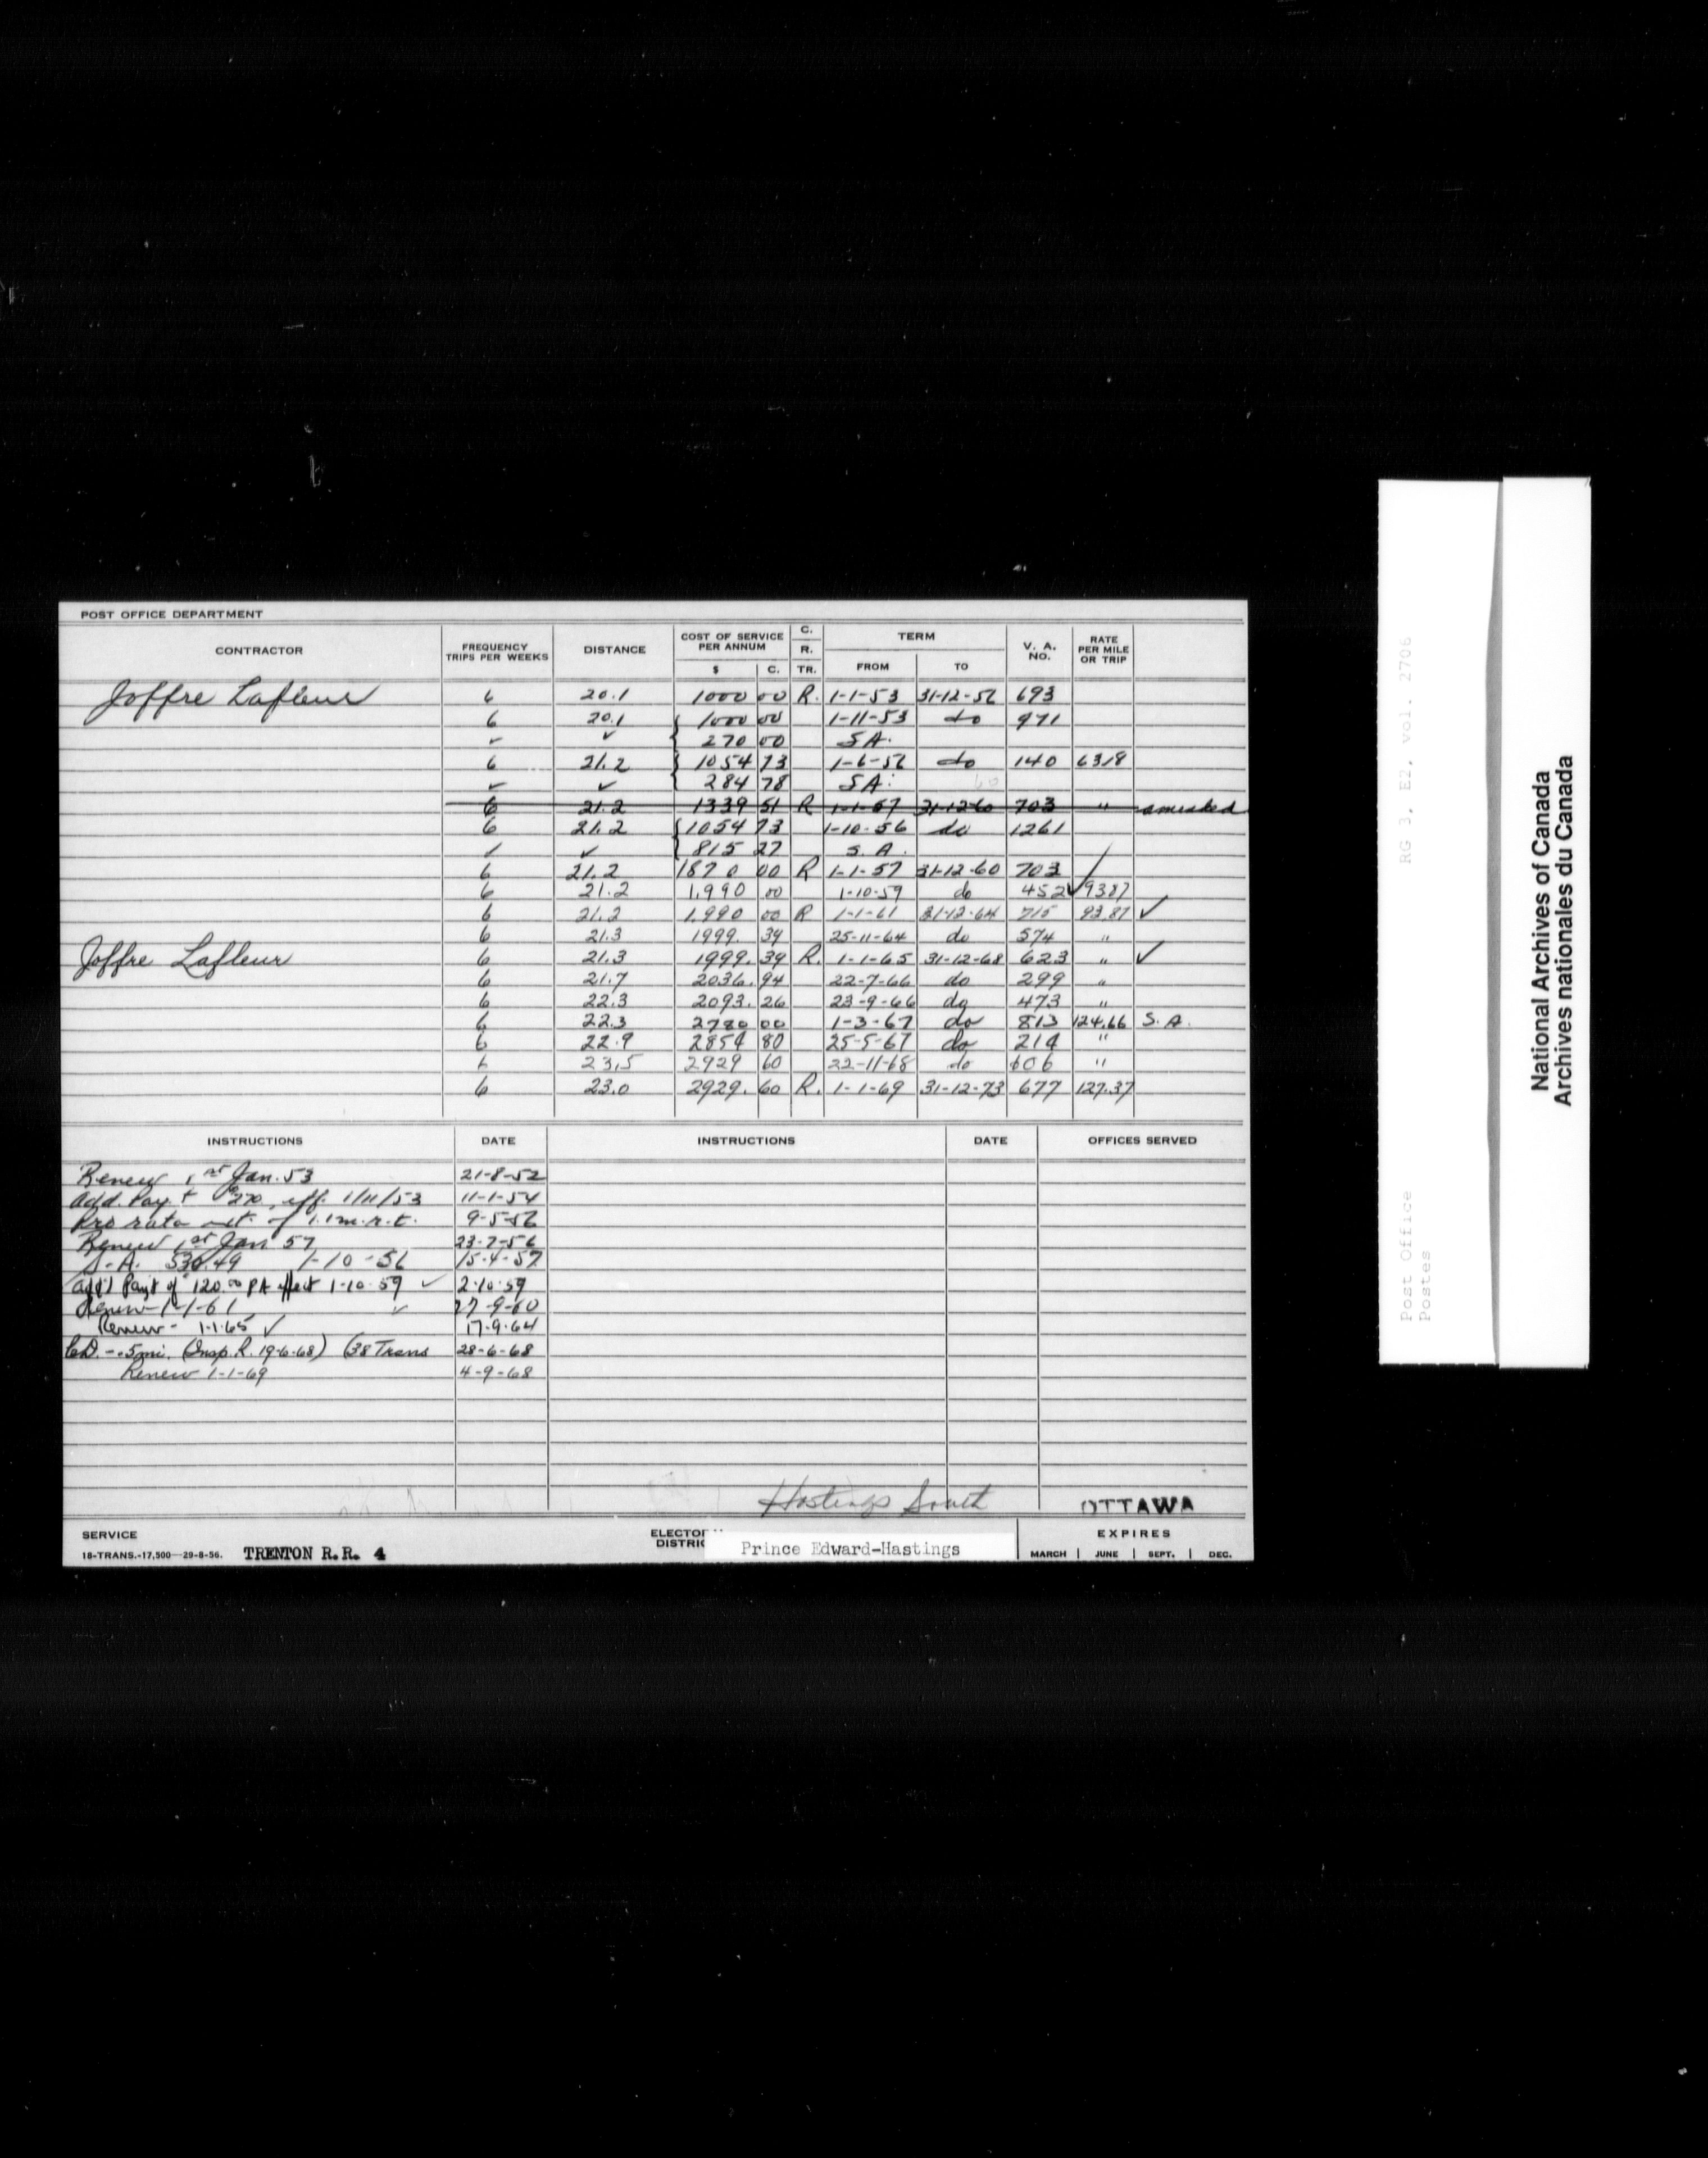 POST OFFICE DEPARTMENT
CONTRACTOR FREQUENCY TRIPS PER WEEKS DISTANCE COST OF SERVICE PER ANNUM $ C. C. R. TR. TERM FROM TO V. A. NO. RATE PER MILE OR TRIP
Joffre Lafleur 6 20.1 1000 00 R. 1-1-53 31-12-56 693
6 20.1 { 1000 00 1-11-53 do 971
✓ ✓ { 270 00 S A.
6 21.2 { 1054 73 1-6-56 do 140 6318
✓ ✓ { 284 78 S A.
6 21.2 1339 51 R 1-1-57 31-12-60 703 " amended
6 21.2 { 1054 73 1-10-56 do 1261
✓ ✓ { 815 27 S. A.
6 21.2 1870 00 R 1-1-57 31-12-60 703
6 21.2 1,990 00 1-10-59 do 452 ✓ 9387
6 21.2 1,990 00 R 1-1-61 31-12-64 715 93.87 ✓
6 21.3 1999. 39 25-11-64 do 574 "
Joffre Lafleur 6 21.3 1999. 39 R. 1-1-65 31-12-68 623 " ✓
6 21.7 2036. 94 22-7-66 do 299 "
6 22.3 2093. 26 23-9-66 do 473 "
6 22.3 2780 00 1-3-67 do 813 124.66 S. A.
6 22.9 2854 80 25-5-67 do 214 "
6 23.5 2929 60 22-11-68 do 606 "
6 23.0 2929. 60 R. 1-1-69 31-12-73 677 127.37
INSTRUCTIONS DATE INSTRUCTIONS DATE OFFICES SERVED
Renew 1st Jan. 53 21-8-52
Add. Pay't $270 eff. 1/11/53 11-1-54
Pro rata of 1.1 m.r.t. 9-5-56
Renew 1st Jan 57 23-7-56
S.A. 530.49 1-10-56 15-4-57
Add'l Pay't of 120.00 PA effect 1-10-59 ✓ 2-10-59
Renew 1-1-61 ✓ 27-9-60
Renew - 1-1-65 ✓ 17-9-64
CD. -.5 mi. (Insp. R. 19-6-68) (38 Trans 28-6-68
Renew 1-1-69 4-9-68
Hastings South OTTAWA
SERVICE
18-TRANS.-17,500—29-8-56. TRENTON R. R. 4
ELECTOR
DISTRIC Prince Edward-Hastings
EXPIRES
MARCH | JUNE | SEPT. | DEC.
RG 3, E2, vol. 2706
Post Office
Postes
National Archives of Canada
Archives nationales du Canada